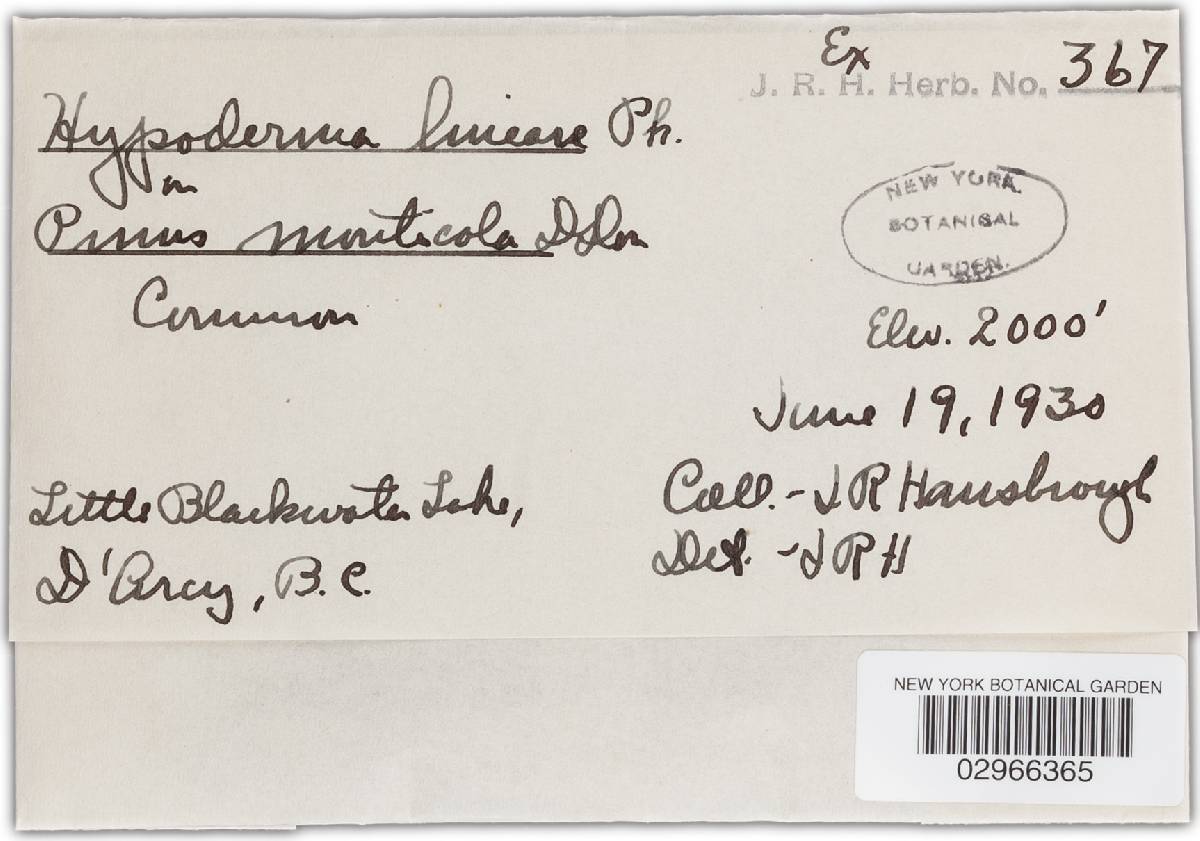 Ex
J. R. H. Herb. No. 367
Hypoderma lineare Pk.
on
Pinus monticola D Don
Common
NEW YORK
BOTANICAL
GARDEN.
Elev. 2000'
June 19, 1930
Little Blackwater Lake,
D'Arcy, B.C.
Coll. - J R Hansbrough
Det. - J R H
NEW YORK BOTANICAL GARDEN
02966365